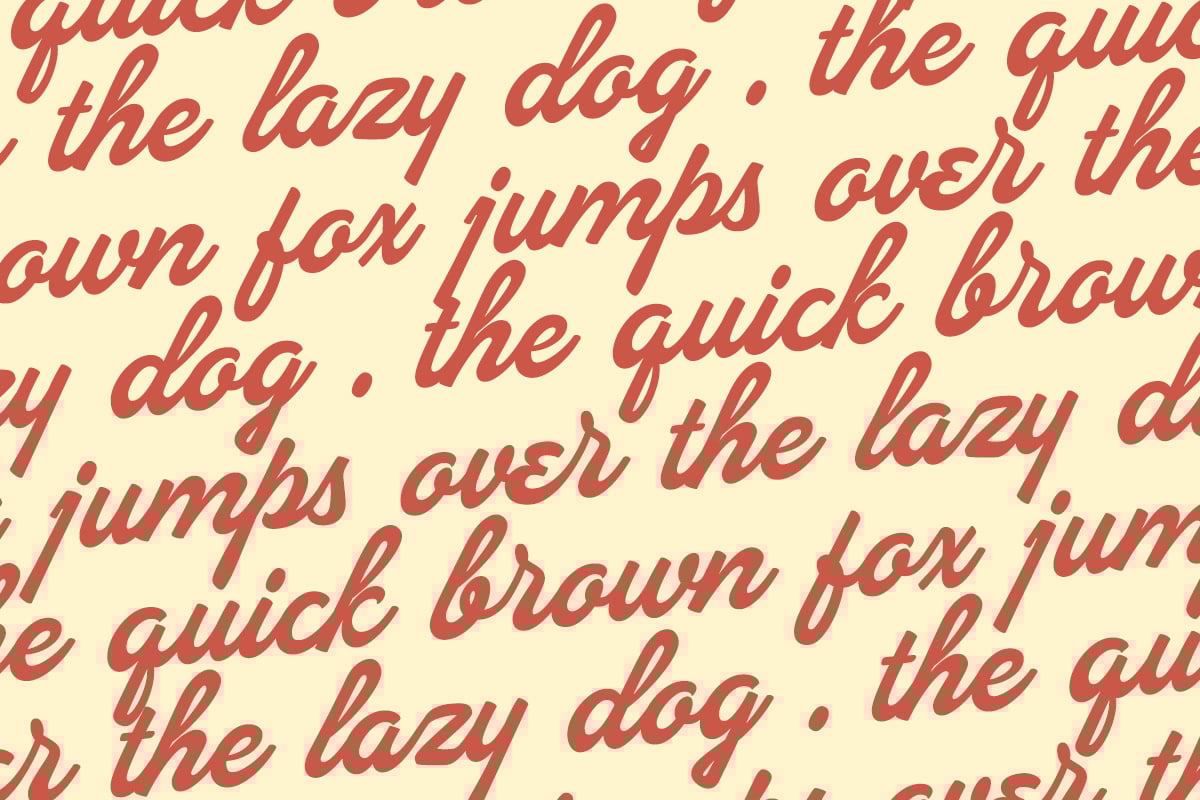 quick
the lazy dog . the quic
own fox jumps over the
zy dog . the quick brow
jumps over the lazy d
he quick brown fox jum
er the lazy dog . the qu
over th